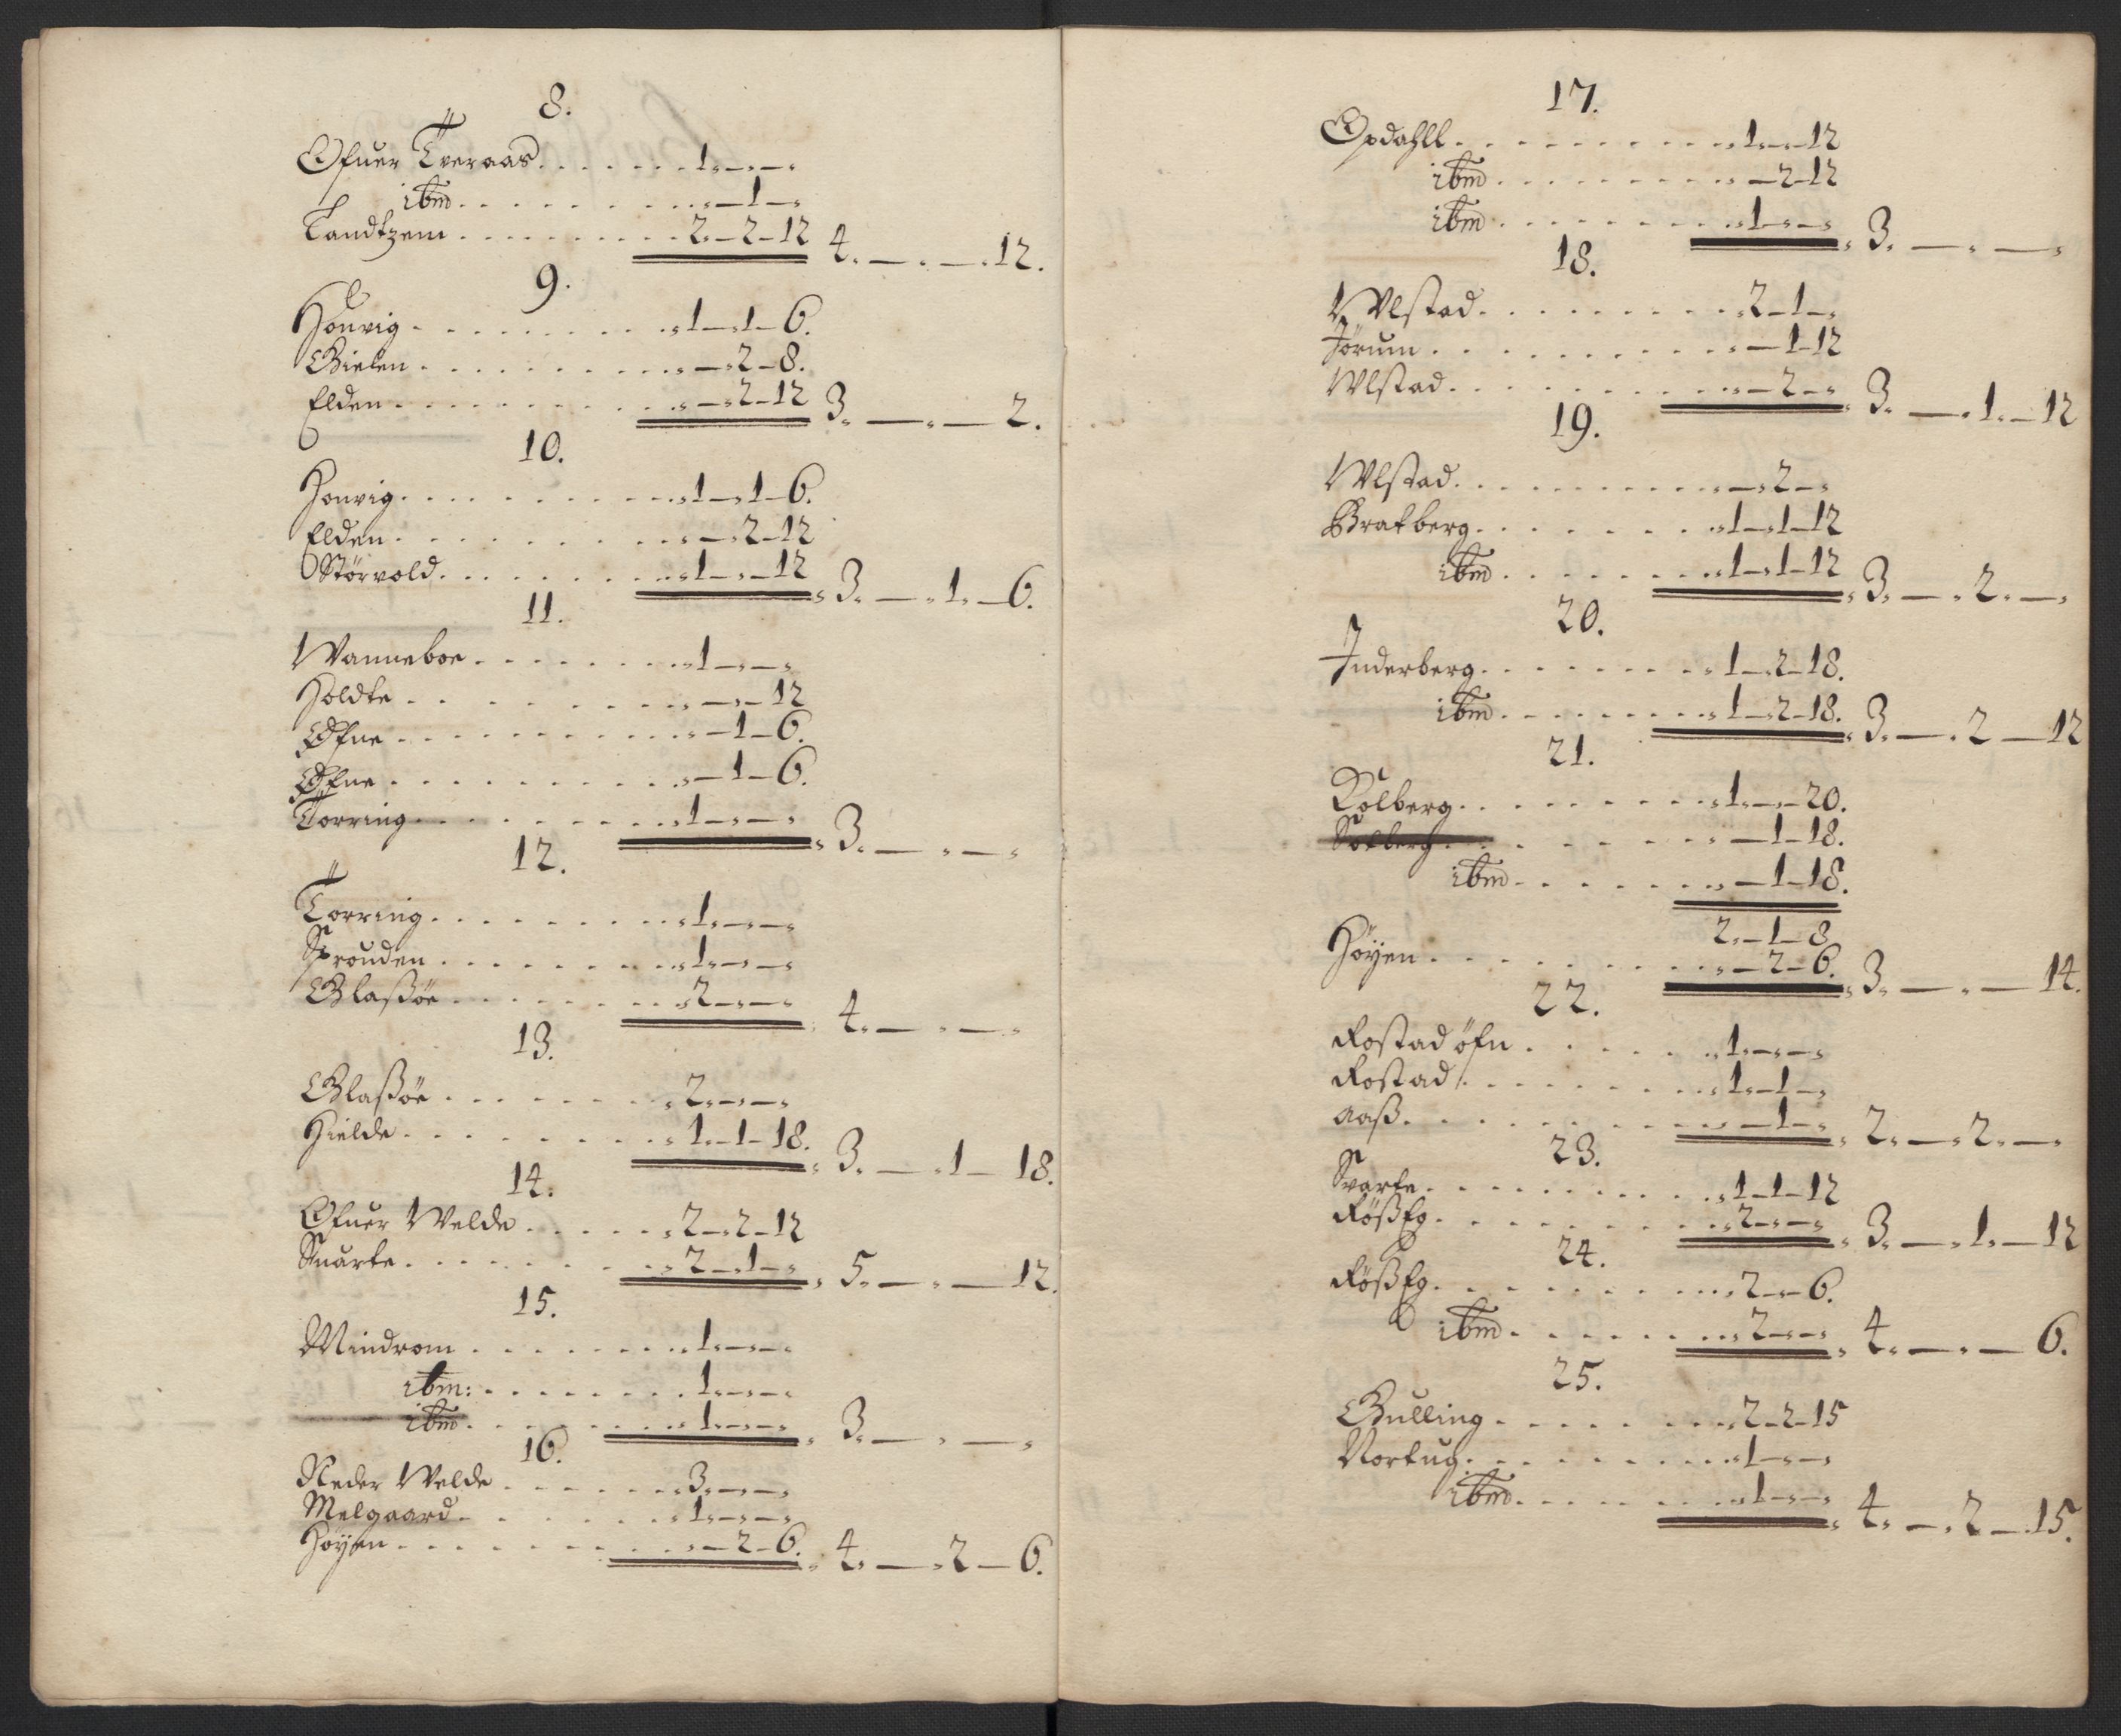 8.
Ofuer Tveraas . . . . . . . 1 — —
ibm . . . . . . . . . — 1 —
Landtzem . . . . . . . . . 2 — 2 — 12 4. — . — . 12.
9.
Honvig . . . . . . . . . 1 — 1 — 6.
Gielen . . . . . . . . . — 2 — 8.
Elden . . . . . . . . . — 2 — 12 3. — . — 2.
10.
Honvig . . . . . . . . . 1 — 1 — 6.
Elden . . . . . . . . . — 2 — 12
Störvold . . . . . . . . 1 — — 12 3. — . 1. — 6.
11.
Wanneboe . . . . . . . . 1 — —
Holdte . . . . . . . . . — — 12
Øfne . . . . . . . . . . — 1 — 6.
Øfne . . . . . . . . . . — 1 — 6.
Torring . . . . . . . . . 1 — — 3. — . —
12.
Torring . . . . . . . . . 1 — —
Sprouden . . . . . . . . 1 — —
Glaßöe . . . . . . . . . 2 — — 4. — . —
13.
Glaßöe . . . . . . . . . 2 — —
Hielde . . . . . . . . . 1 — 1 — 18. 3. — . 1 — 18.
14.
Ofuer Welde . . . . . . 2 — 2 — 12
Suarte . . . . . . . . . 2 — 1 — 5. — . — 12.
15.
Mindrom . . . . . . . . 1 — —
ibm: . . . . . . . . . 1 — —
ibm . . . . . . . . . 1 — — 3. — . —
16.
Neder Welde . . . . . . 3 — —
Melgaard . . . . . . . . 1 — —
Høyen . . . . . . . . . — 2 — 6. 4. — . 2 — 6.
17.
Opdahll . . . . . . . . . 1 — — 12
ibm . . . . . . . . . — 2 — 12
ibm . . . . . . . . . 1 — — 3. — . —
18.
Wlstad . . . . . . . . . 2 — 1 —
Jörum . . . . . . . . . — 1 — 12
Wlstad . . . . . . . . . — 2 — 3. — . 1. — 12
19.
Wlstad . . . . . . . . . — 2 —
Bratberg . . . . . . . . 1 — 1 — 12
ibm . . . . . . . . . 1 — 1 — 12 3. — . 2. —
20.
Inderberg . . . . . . . . 1 — 2 — 18.
ibm . . . . . . . . . 1 — 2 — 18. 3. — . 2 — 12
21.
Kolberg . . . . . . . . . 1 — — 20.
Solberg . . . . . . . . . — 1 — 18.
ibm . . . . . . . . . — 1 — 18.
2. — 1 — 8
Höyen . . . . . . . . . — 2 — 6. 3. — . — 14.
22.
Rostad öfn . . . . . . . 1 — —
Rostad . . . . . . . . . 1 — 1 —
aaß . . . . . . . . . . — 1 — 2. — . 2. —
23.
Svarte . . . . . . . . . 1 — 1 — 12
Rößeg . . . . . . . . . 2 — — 3. — . 1. — 12
24.
Rößeg . . . . . . . . . 2 — — 6.
ibm . . . . . . . . . 2 — — 4. — . — 6.
25.
Gulling . . . . . . . . . 2 — 2 — 15
Nortug . . . . . . . . . 1 — —
ibm . . . . . . . . . 1 — — 4. — . 2 — 15.